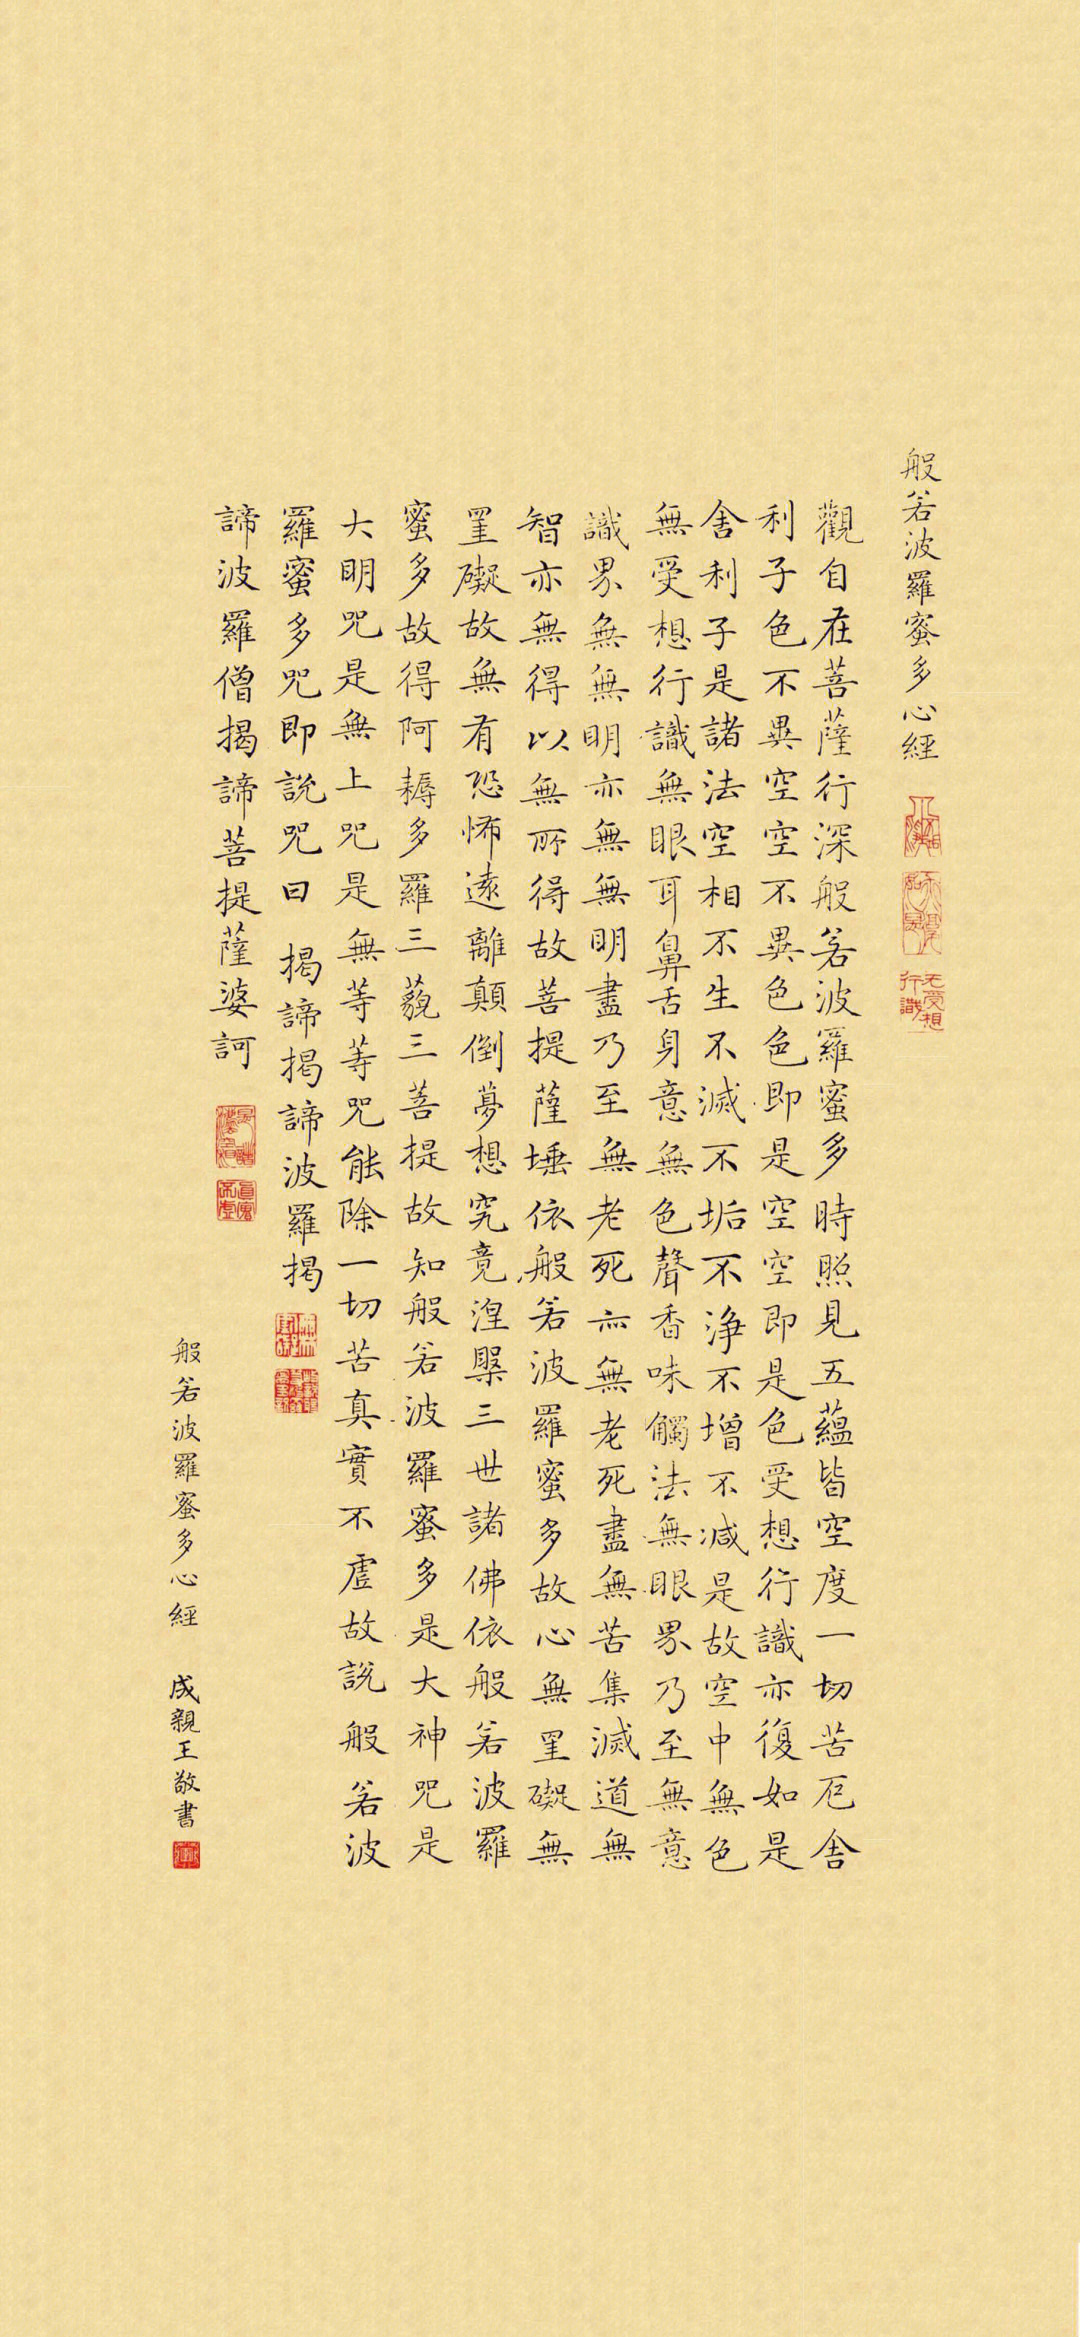 般若波羅蜜多心經
无受想
行識
觀自在菩薩行深般若波羅蜜多時照見五蘊皆空度一切苦厄舍
利子色不異空空不異色色即是空空即是色受想行識亦復如是
舍利子是諸法空相不生不滅不垢不淨不增不減是故空中無色
無受想行識無眼耳鼻舌身意無色聲香味觸法無眼界乃至無意
識界無無明亦無無明盡乃至無老死亦無老死盡無苦集滅道無
智亦無得以無所得故菩提薩埵依般若波羅蜜多故心無罣礙無
罣礙故無有恐怖遠離顛倒夢想究竟涅槃三世諸佛依般若波羅
蜜多故得阿耨多羅三藐三菩提故知般若波羅蜜多是大神咒是
大明咒是無上咒是無等等咒能除一切苦真實不虛故說般若波
羅蜜多咒即說咒曰 揭諦揭諦波羅揭
諦波羅僧揭諦菩提薩婆訶
般若波羅蜜多心經 成親王敬書